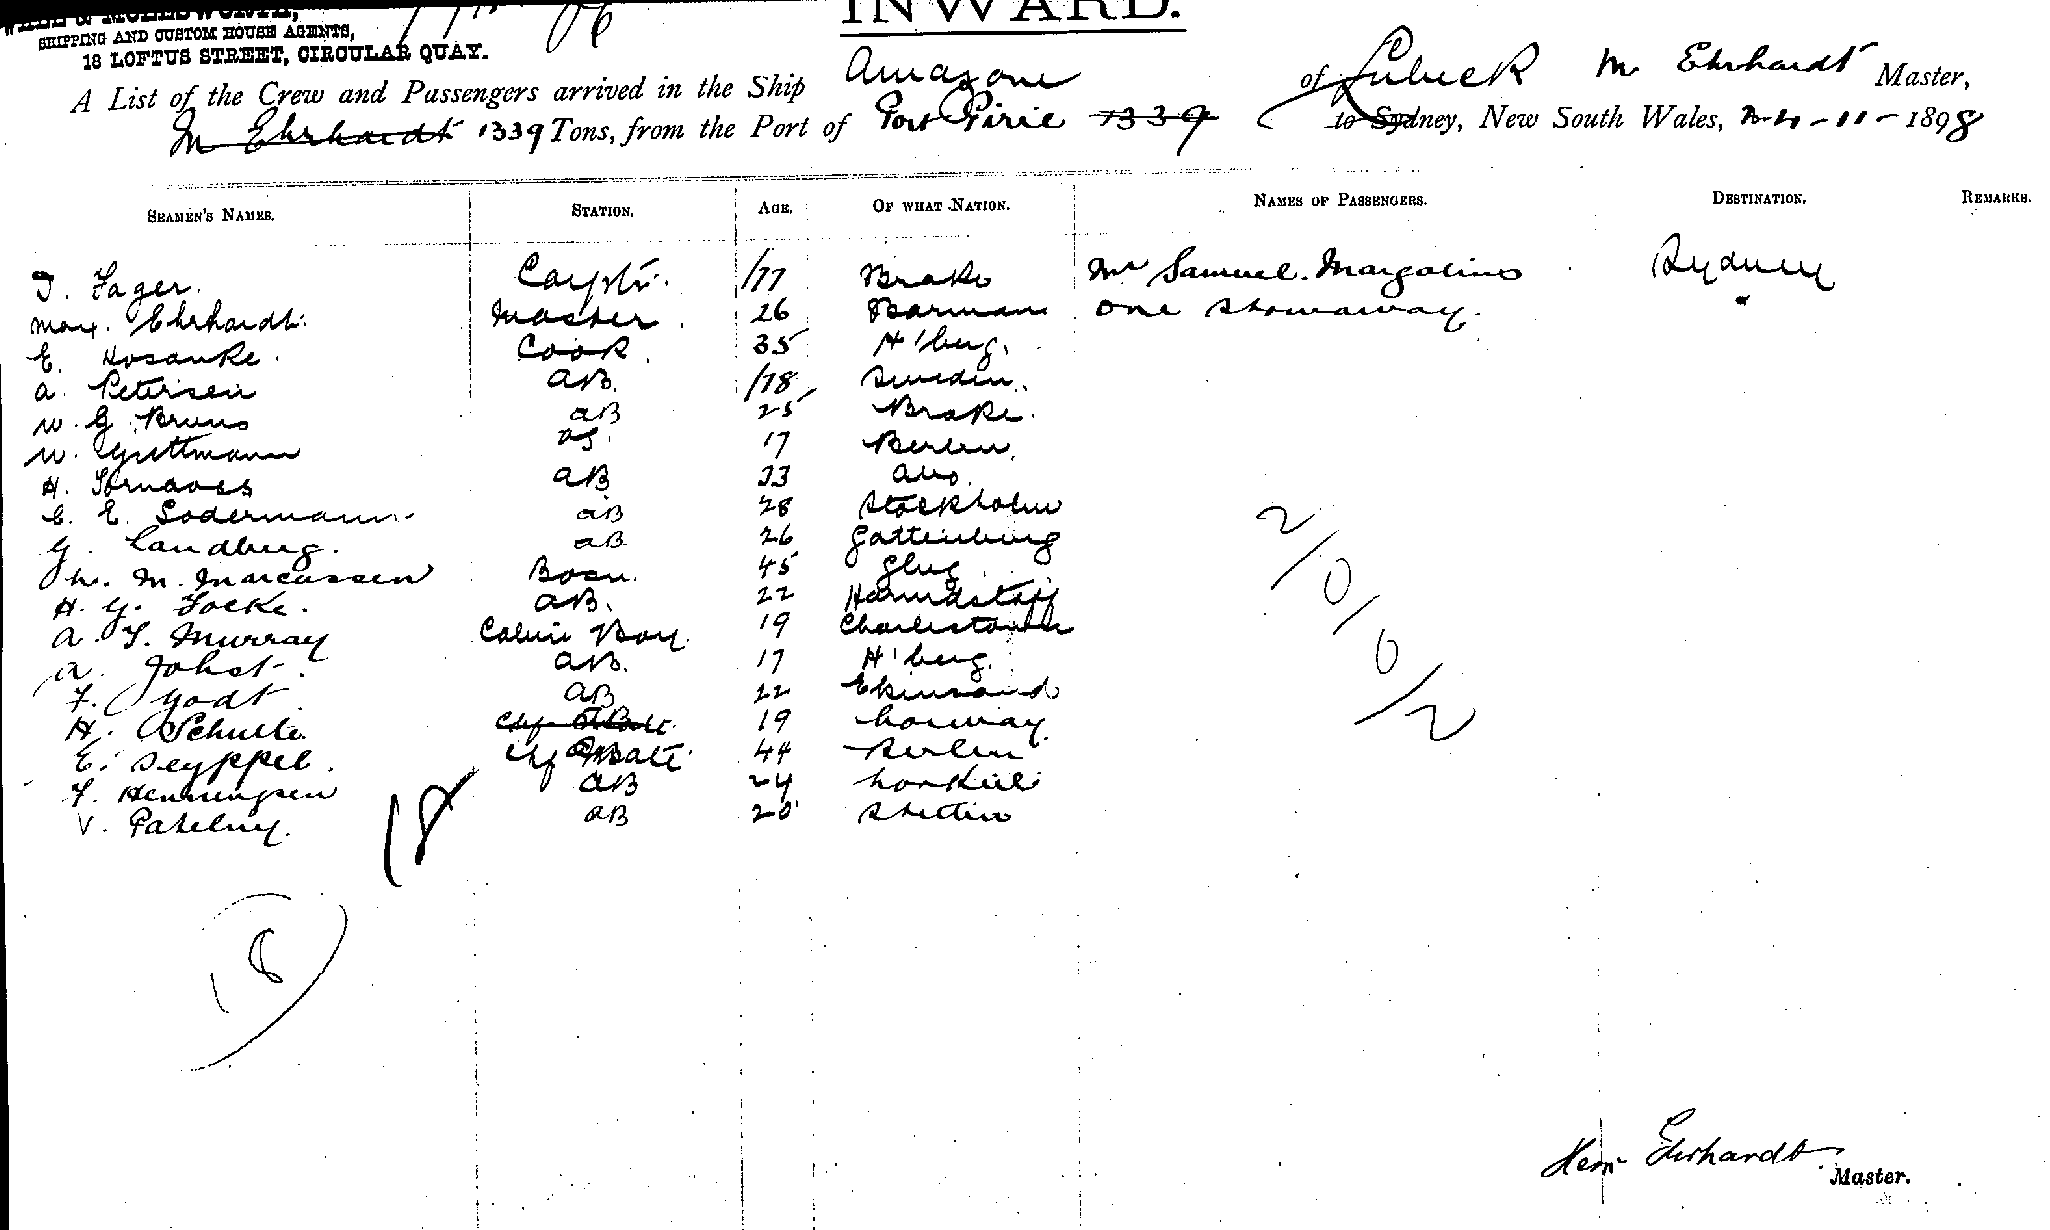 INWARD.
SHIPPING AND CUSTOM HOUSE AGENTS,
18 LOFTUS STREET, CIRCULAR QUAY.
A List of the Crew and Passengers arrived in the Ship Amazone of Lubeck M Ehrhardt Master,
M Ehrhardt 1339 Tons, from the Port of Port Pirie 1339 to Sydney, New South Wales, 24-11-1898
SEAMEN'S NAMES. STATION. AGE. OF WHAT NATION. NAMES OF PASSENGERS. DESTINATION. REMARKS.
Brake Mr Samuel Margolins Sydney
Max. Ehrhardt. Master 26 Barman one stowaway. "
E. Kosanke. Cook. 35 H'berg.
A. Petersen AB. Sweden.
W. G. Bruns AB 25 Brake.
W. Guttmann 17 Berlin.
H. AB 33 Abo.
C. E. Sodermann AB 28 Stockholm
G. Landberg. AB 26 Gottenburg
M. Marcussen Bosn. 45
H. G. Focke. AB. 22
A. F. Murray Cabin Boy. 19
A. Johst. AB. 17 H'berg.
F. Godt AB 22
H. Schulte AB 19 Norway.
E. Seyppel. Chf Mate 44 Berlin
F. Henningsen AB 24
V. AB 20 Stettin
18
2/0/0/2
18
Ehrhardt
Master.